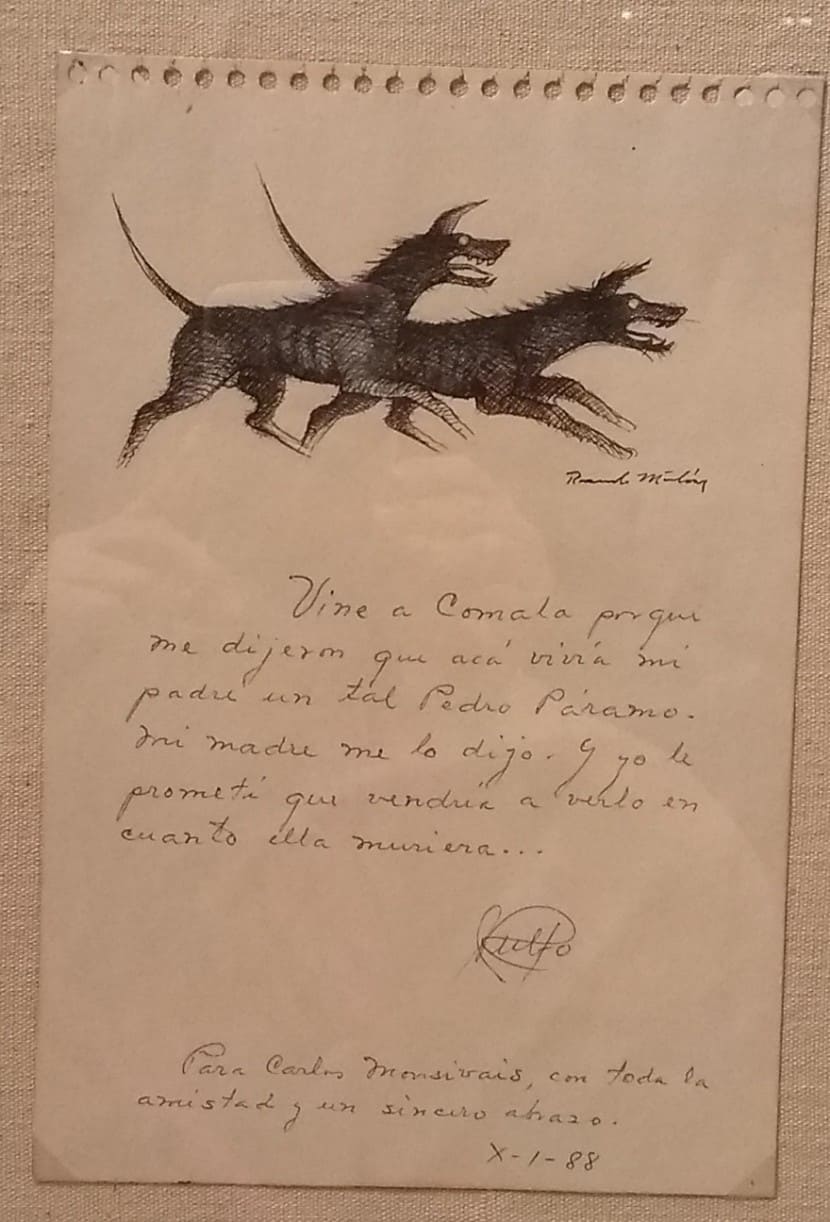 Vine a Comala porque
me dijeron que acá vivía mi
padre un tal Pedro Páramo.
Mi madre me lo dijo. Y yo le
prometí que vendría a verlo en
cuanto ella muriera...
Rulfo
Para Carlos Monsivais, con toda la
amistad y un sincero abrazo.
X-1-88